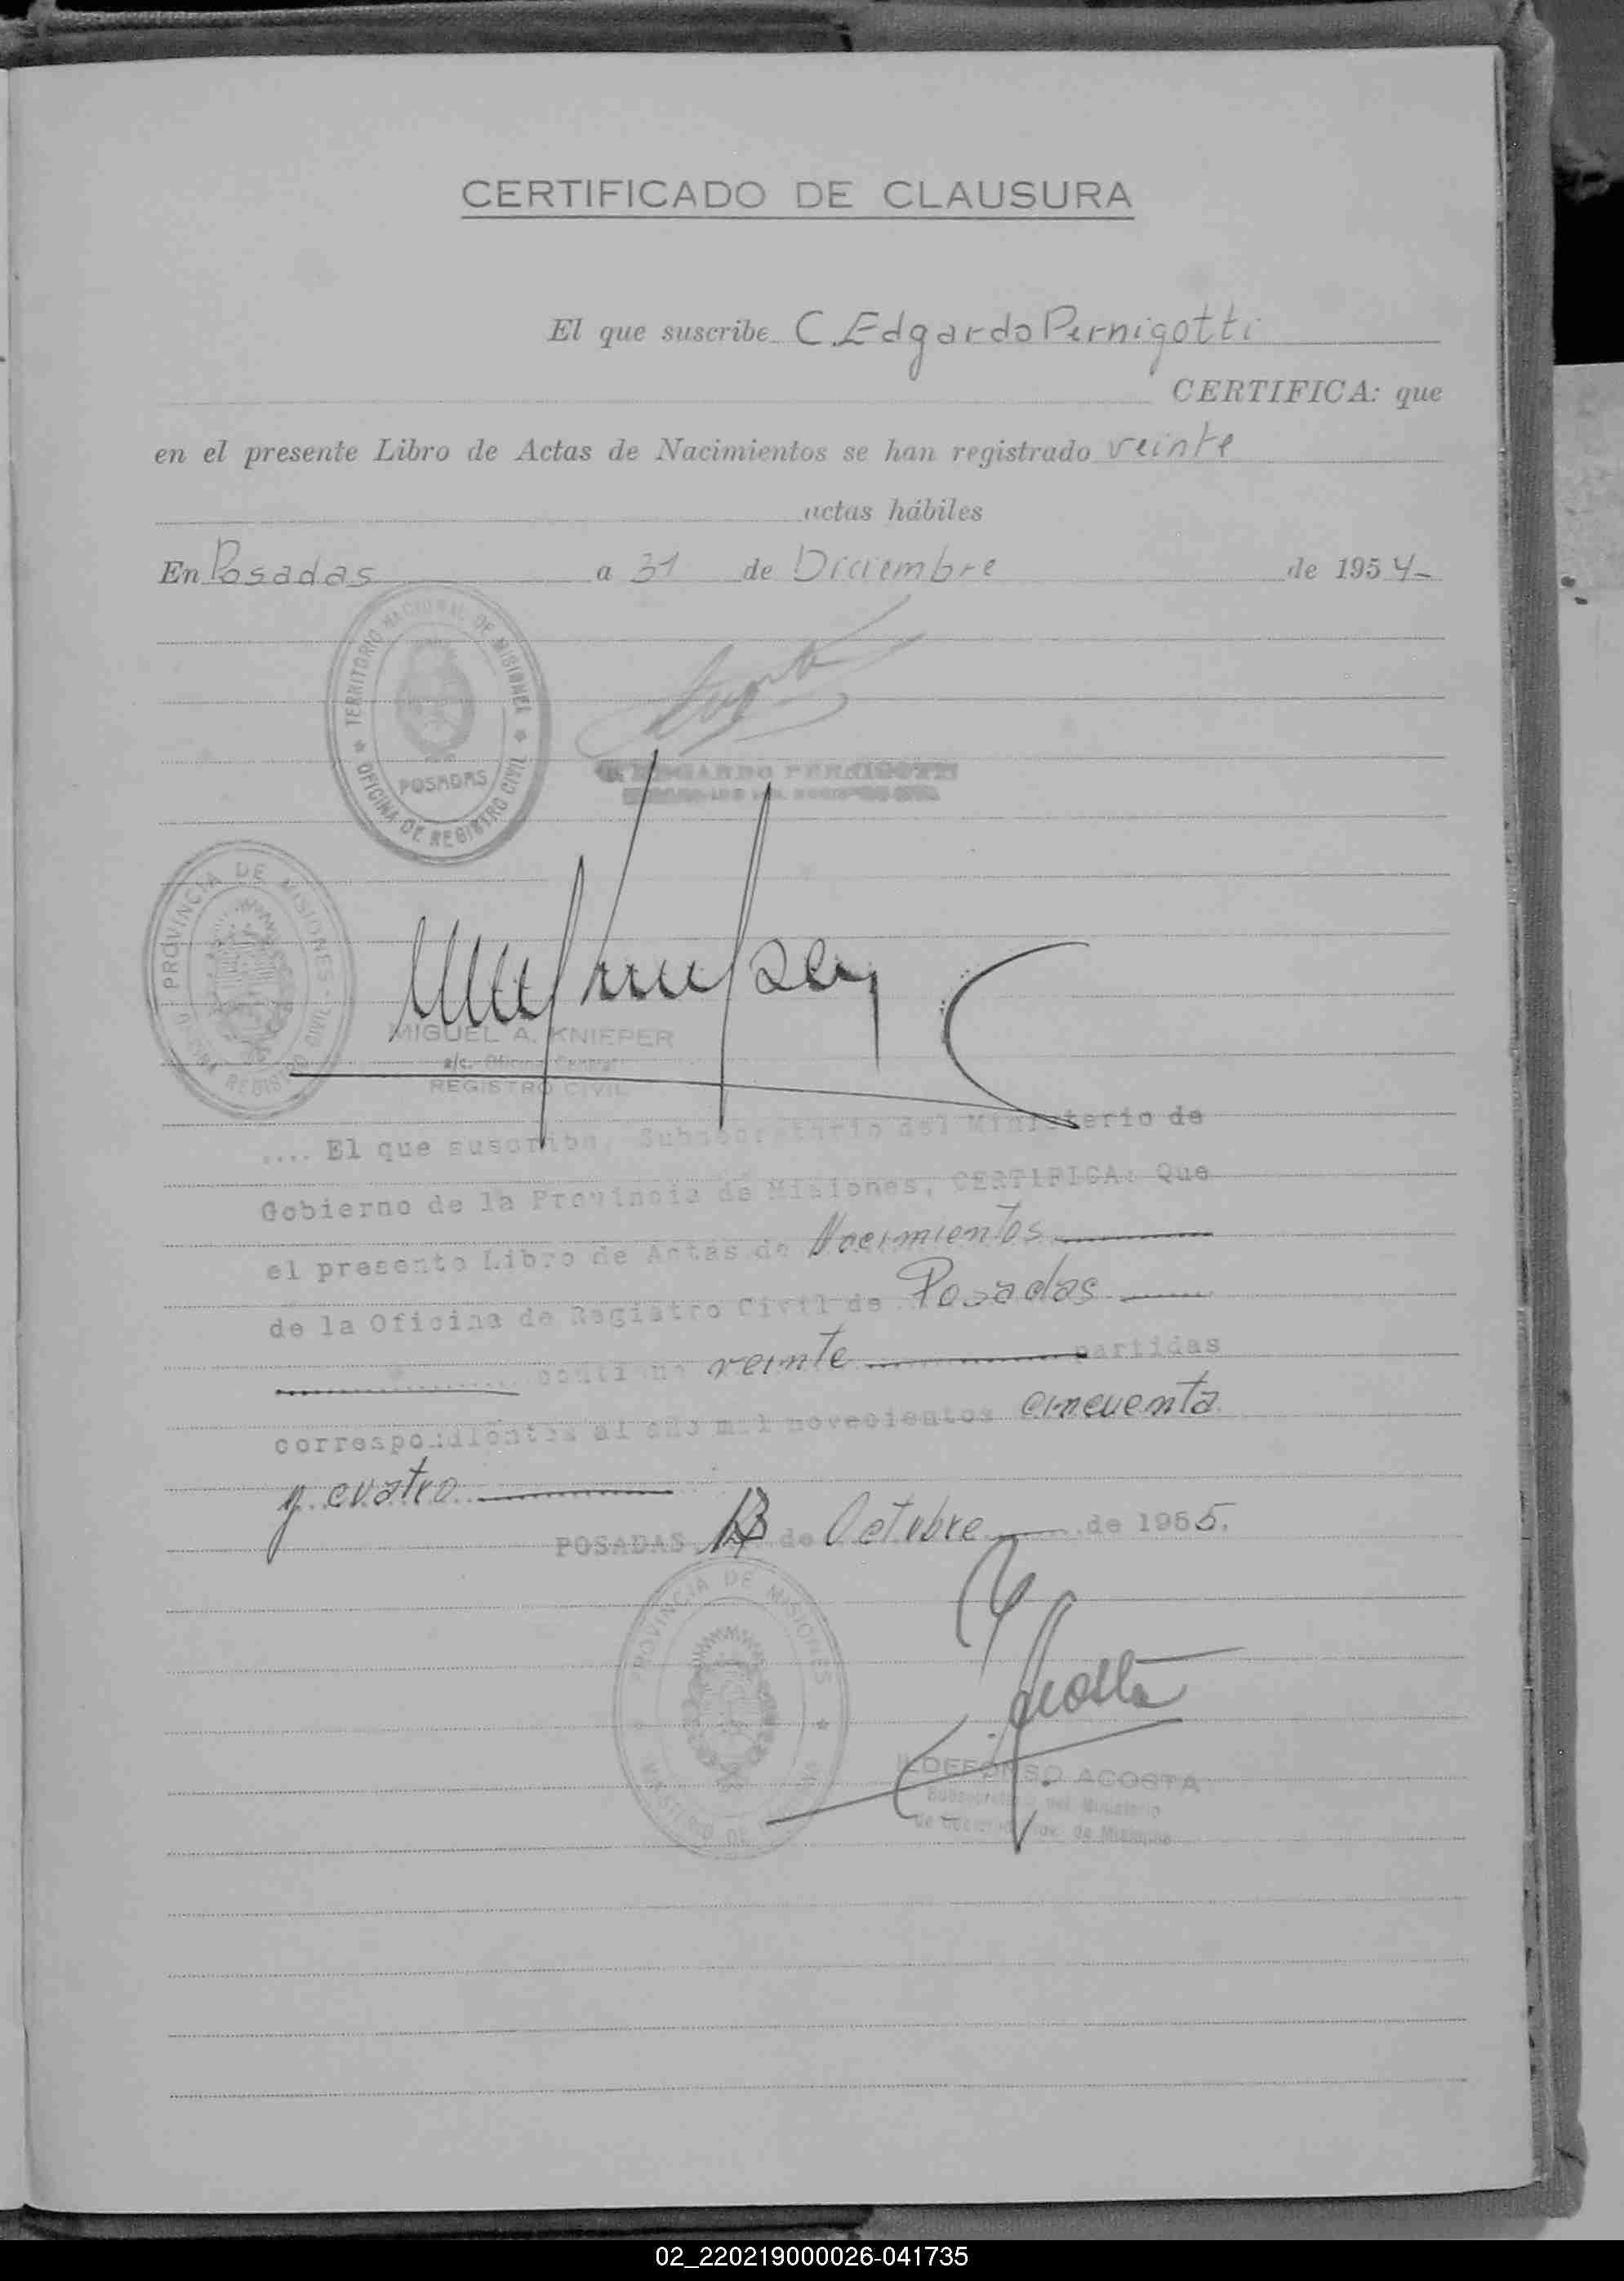 CERTIFICADO DE CLAUSURA
El que suscribe C. Edgardo Pernigotti
CERTIFICA: que
en el presente Libro de Actas de Nacimientos se han registrado veinte
actas hábiles
En Posadas a 31 de Diciembre de 1954
TERRITORIO NACIONAL DE MISIONES
POSADAS
OFICINA DE REGISTRO CIVIL
C. EDGARDO PERNIGOTTI
PROVINCIA DE MISIONES
REGISTRO CIVIL
MIGUEL A. KNIEPER
a/c. Oficina Central
REGISTRO CIVIL
.... El que suscribe, Subsecretario del Ministerio de
Gobierno de la Provincia de Misiones, CERTIFICA: Que
el presente Libro de Actas de Nacimientos
de la Oficina de Registro Civil de Posadas
contiene veinte partidas
correspondientes al año mil novecientos cincuenta
y cuatro
POSADAS, de Octubre de 1955.
PROVINCIA DE MISIONES
MINISTERIO DE
Acosta
ILDEFONSO ACOSTA
Subsecretario del Ministerio
de Gobierno Prov. de Misiones
02_220219000026-041735